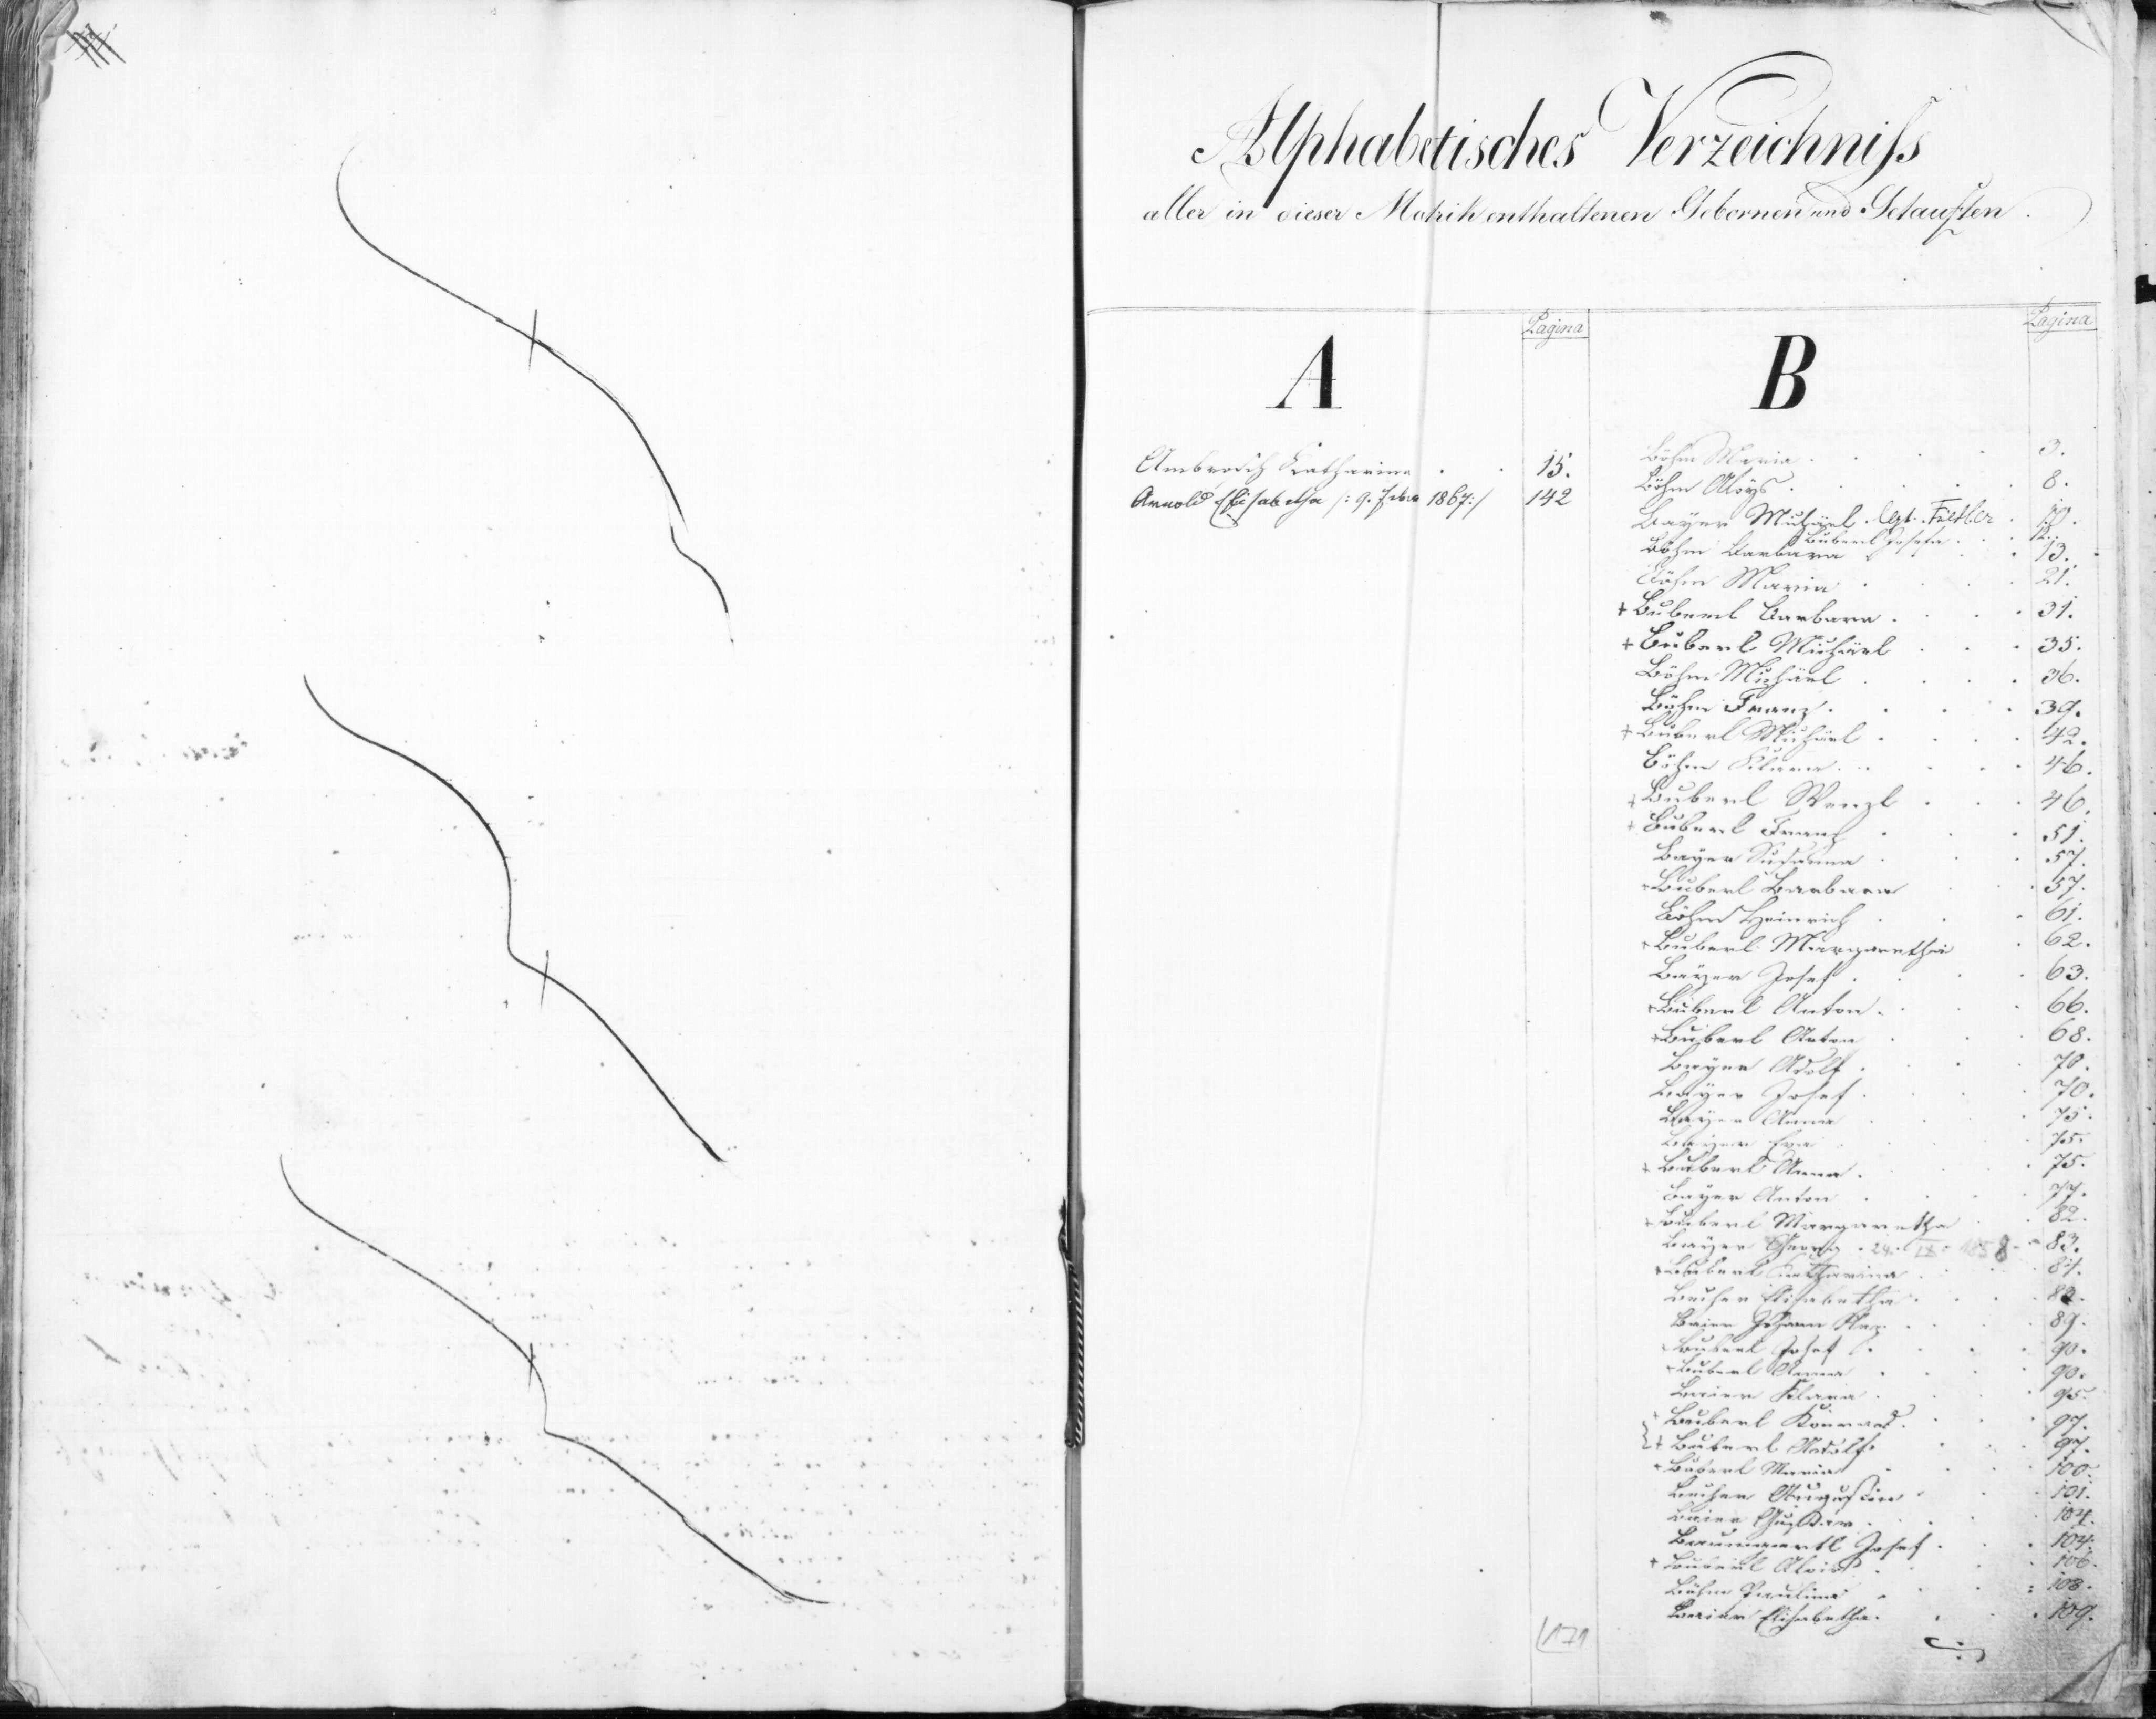 Alphabetisches Verzeichniſs
aller in dieser Matrik enthaltenen Gebornen und Getauften.
Pagina
A
Ambrosch Katharina . . 15.
Arnold Elisabetha /: 9. 1867 :/ 142
171
Pagina
B
Böhm Maria . . . 3.
Böhm Aloys . . . 8.
Bayer Michael . legt. Fiedler . 10.
Buberl Josefa . . . 12.
Böhm Barbara . . 13.
Böhm Maria . . . 21.
+ Buberl Barbara . . . 31.
+ Buberl Michael . . . 35.
Böhm Michael . . . 36.
Böhm Franz . . . 39.
+ Buberl Michael . . . 42.
Böhm Klara . . . 46.
+ Buberl Wenzl . . . 46.
+ Buberl Franz . . . 51.
Bayer Susanna . . . 57.
+ Buberl Barbara . . 57.
Böhm Heinrich . . . 61.
+ Buberl Margaretha . 62.
Bayer Josef . . . 63.
+ Buberl Anton . . . 66.
+ Buberl Anton . . . 68.
Bayer Adolf . . . 70.
Bayer Josef . . . 70.
Bayer Anna . . . 75.
Bayer Eva . . . 75.
+ Buberl Anna . . . 75.
Bayer Anton . . . 77.
+ Buberl Margaretha . . 82.
Bayer Georg . 24. IX. 1858 - 83.
+ Buberl Katharina . . 87.
Becher Elisabetha . . .
Baier Johann . . . 89.
+ Buberl Josef . . . 90.
+ Buberl Anna . . . 90.
Baier Klara . . . 95.
+ Buberl Konrad . . . 97.
+ Buberl Adolf . . . 97.
+ Buberl Maria . . . 100.
Becher Augustin . . . 101.
Baier Gustav . . . 104.
Baumgartl Josef . . . 104.
+ Buberl Alois . . . 106.
Böhm Paulina . . . 108.
Baier Elisabetha . . . 109.